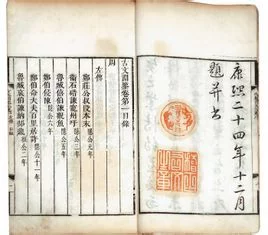 康熙二十四年十二月
題并書
古文淵鑒卷第一目錄
周
左傳
鄭莊公叔段本末 隱公元年
衛石碏諫寵州吁 隱公三年
魯臧僖伯諫觀魚 隱公五年
鄭伯侵陳 隱公六年
鄭伯命大夫百里居許 隱公十一年
魯臧哀伯諫納郜鼎 桓公二年